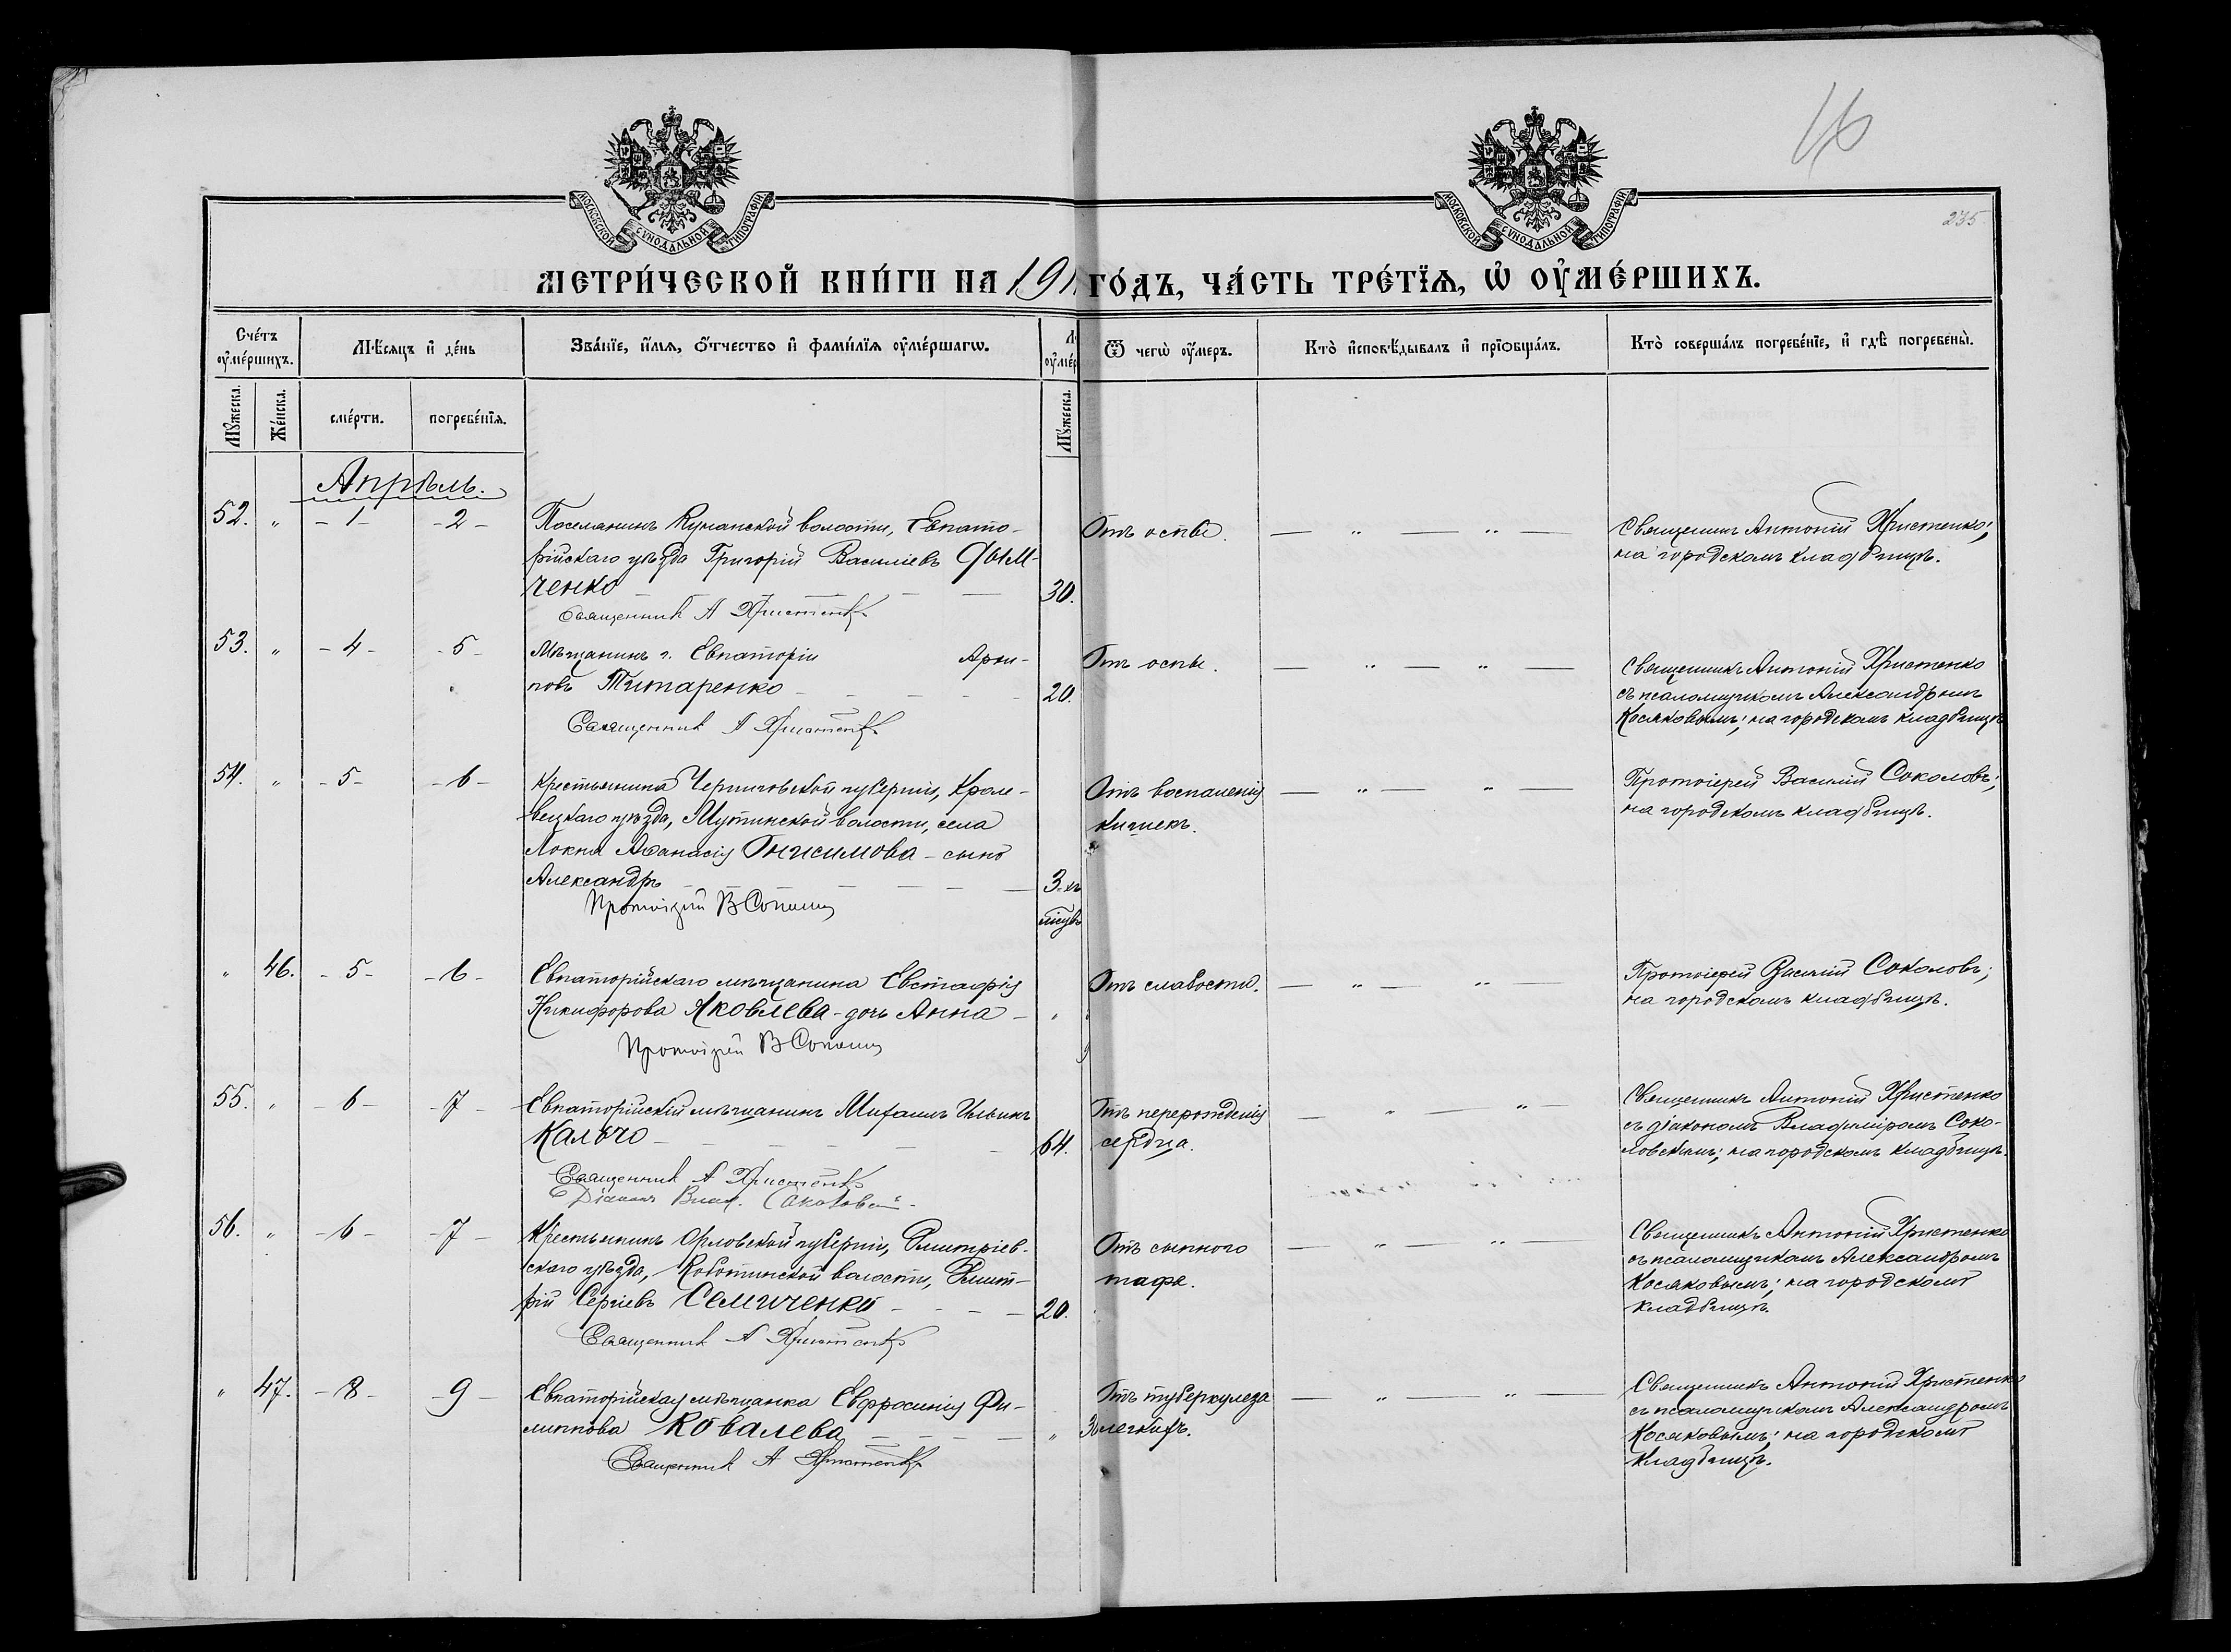 16
235
МОСКОВСКОЙ СУНОДАЛЬНОЙ ТИПОГРАФІИ
МОСКОВСКОЙ СУНОДАЛЬНОЙ ТИПОГРАФІИ
МЕТРИ́ЧЕСКОЙ КНИ́ГИ НА 191 ГО́ДЪ, ЧА́СТЬ ТРЕ́ТЇѦ, Ѡ҆ ОУ҆МЕ́РШИХЪ.
Сче́тъ оу҆ме́ршихъ.
Мѣ́сяцъ и҆ де́нь
Зва́нїе, и҆́мѧ, ѻ҆́тчество и҆ фами́лїѧ оу҆ме́ршагѡ.
Ѿ чегѡ̀ оу҆́меръ.
Кто̀ и҆сповѣ́дывалъ и҆ прїѡбща́лъ.
Кто̀ соверша́лъ погребе́нїе, и҆ гдѣ̀ погребены̀.
Мꙋ́жеска.
Же́нска.
сме́рти.
погребе́нїѧ.
Мꙋ́жеска.
Апрѣль.
52. " - 1 - - 2 - Поселянинъ Кунанской волости, Евпато-
рійскаго уѣзда Григорій Василіевъ Дым-
ченко 30.
Священникъ А Христенко
Отъ оспы. — " — " —
Священникъ Антоній Христенко;
на городскомъ кладбищѣ.
53. " - 4 - - 5 - Мѣщанинъ г. Евпаторіи Архи-
повъ Титаренко 20.
Священникъ А Христенко
Отъ оспы. — " — " —
Священникъ Антоній Христенко
съ псаломщикомъ Александромъ
Косяковымъ; на городскомъ кладбищѣ
54. " - 5 - - 6 - Крестьянина Черниговской губерніи, Кроле-
вецкаго уѣзда, Мутинской волости, села
Локня Аѳанасія Онисимова - сынъ
Александръ 3-хъ
мѣсцвъ
Протоіерей В Соколовъ
Отъ воспаленія — " — " —
кишекъ.
Протоіерей Василій Соколовъ;
на городскомъ кладбищѣ.
" 46. - 5 - - 6 - Евпаторійскаго мѣщанина Евстафія
Никифорова Яковлева - дочь Анна - "
Протоіерей В Соколовъ
Отъ слабости. — " — " —
Протоіерей Василій Соколовъ;
на городскомъ кладбищѣ.
55. " - 6 - - 7 - Евпаторійскій мѣщанинъ Михаилъ Ильинъ
Калью 64.
Священникъ А Христенко
Діаконъ Влад. Соколовскій
Отъ перерожденія — " — " —
сердца.
Священникъ Антоній Христенко
съ діакономъ Владиміромъ Соко-
ловскимъ; на городскомъ кладбищѣ.
56. " - 6 - - 7 - Крестьянинъ Орловской губерніи, Дмитріев-
скаго уѣзда, волости, Дмит-
рій Сергіевъ Семиченко 20.
Священникъ А Христенко
Отъ сыпного — " — " —
тифа.
Священникъ Антоній Христенко
съ псаломщикомъ Александромъ
Косяковымъ; на городскомъ
кладбищѣ.
" 47. - 8 - - 9 - Евпаторійская мѣщанка Евфросинія Фи-
липпова Ковалева "
Священникъ А Христенко
Отъ туберкулеза — " — " —
легкихъ.
Священникъ Антоній Христенко
съ псаломщикомъ Александромъ
Косяковымъ; на городскомъ
кладбищѣ.